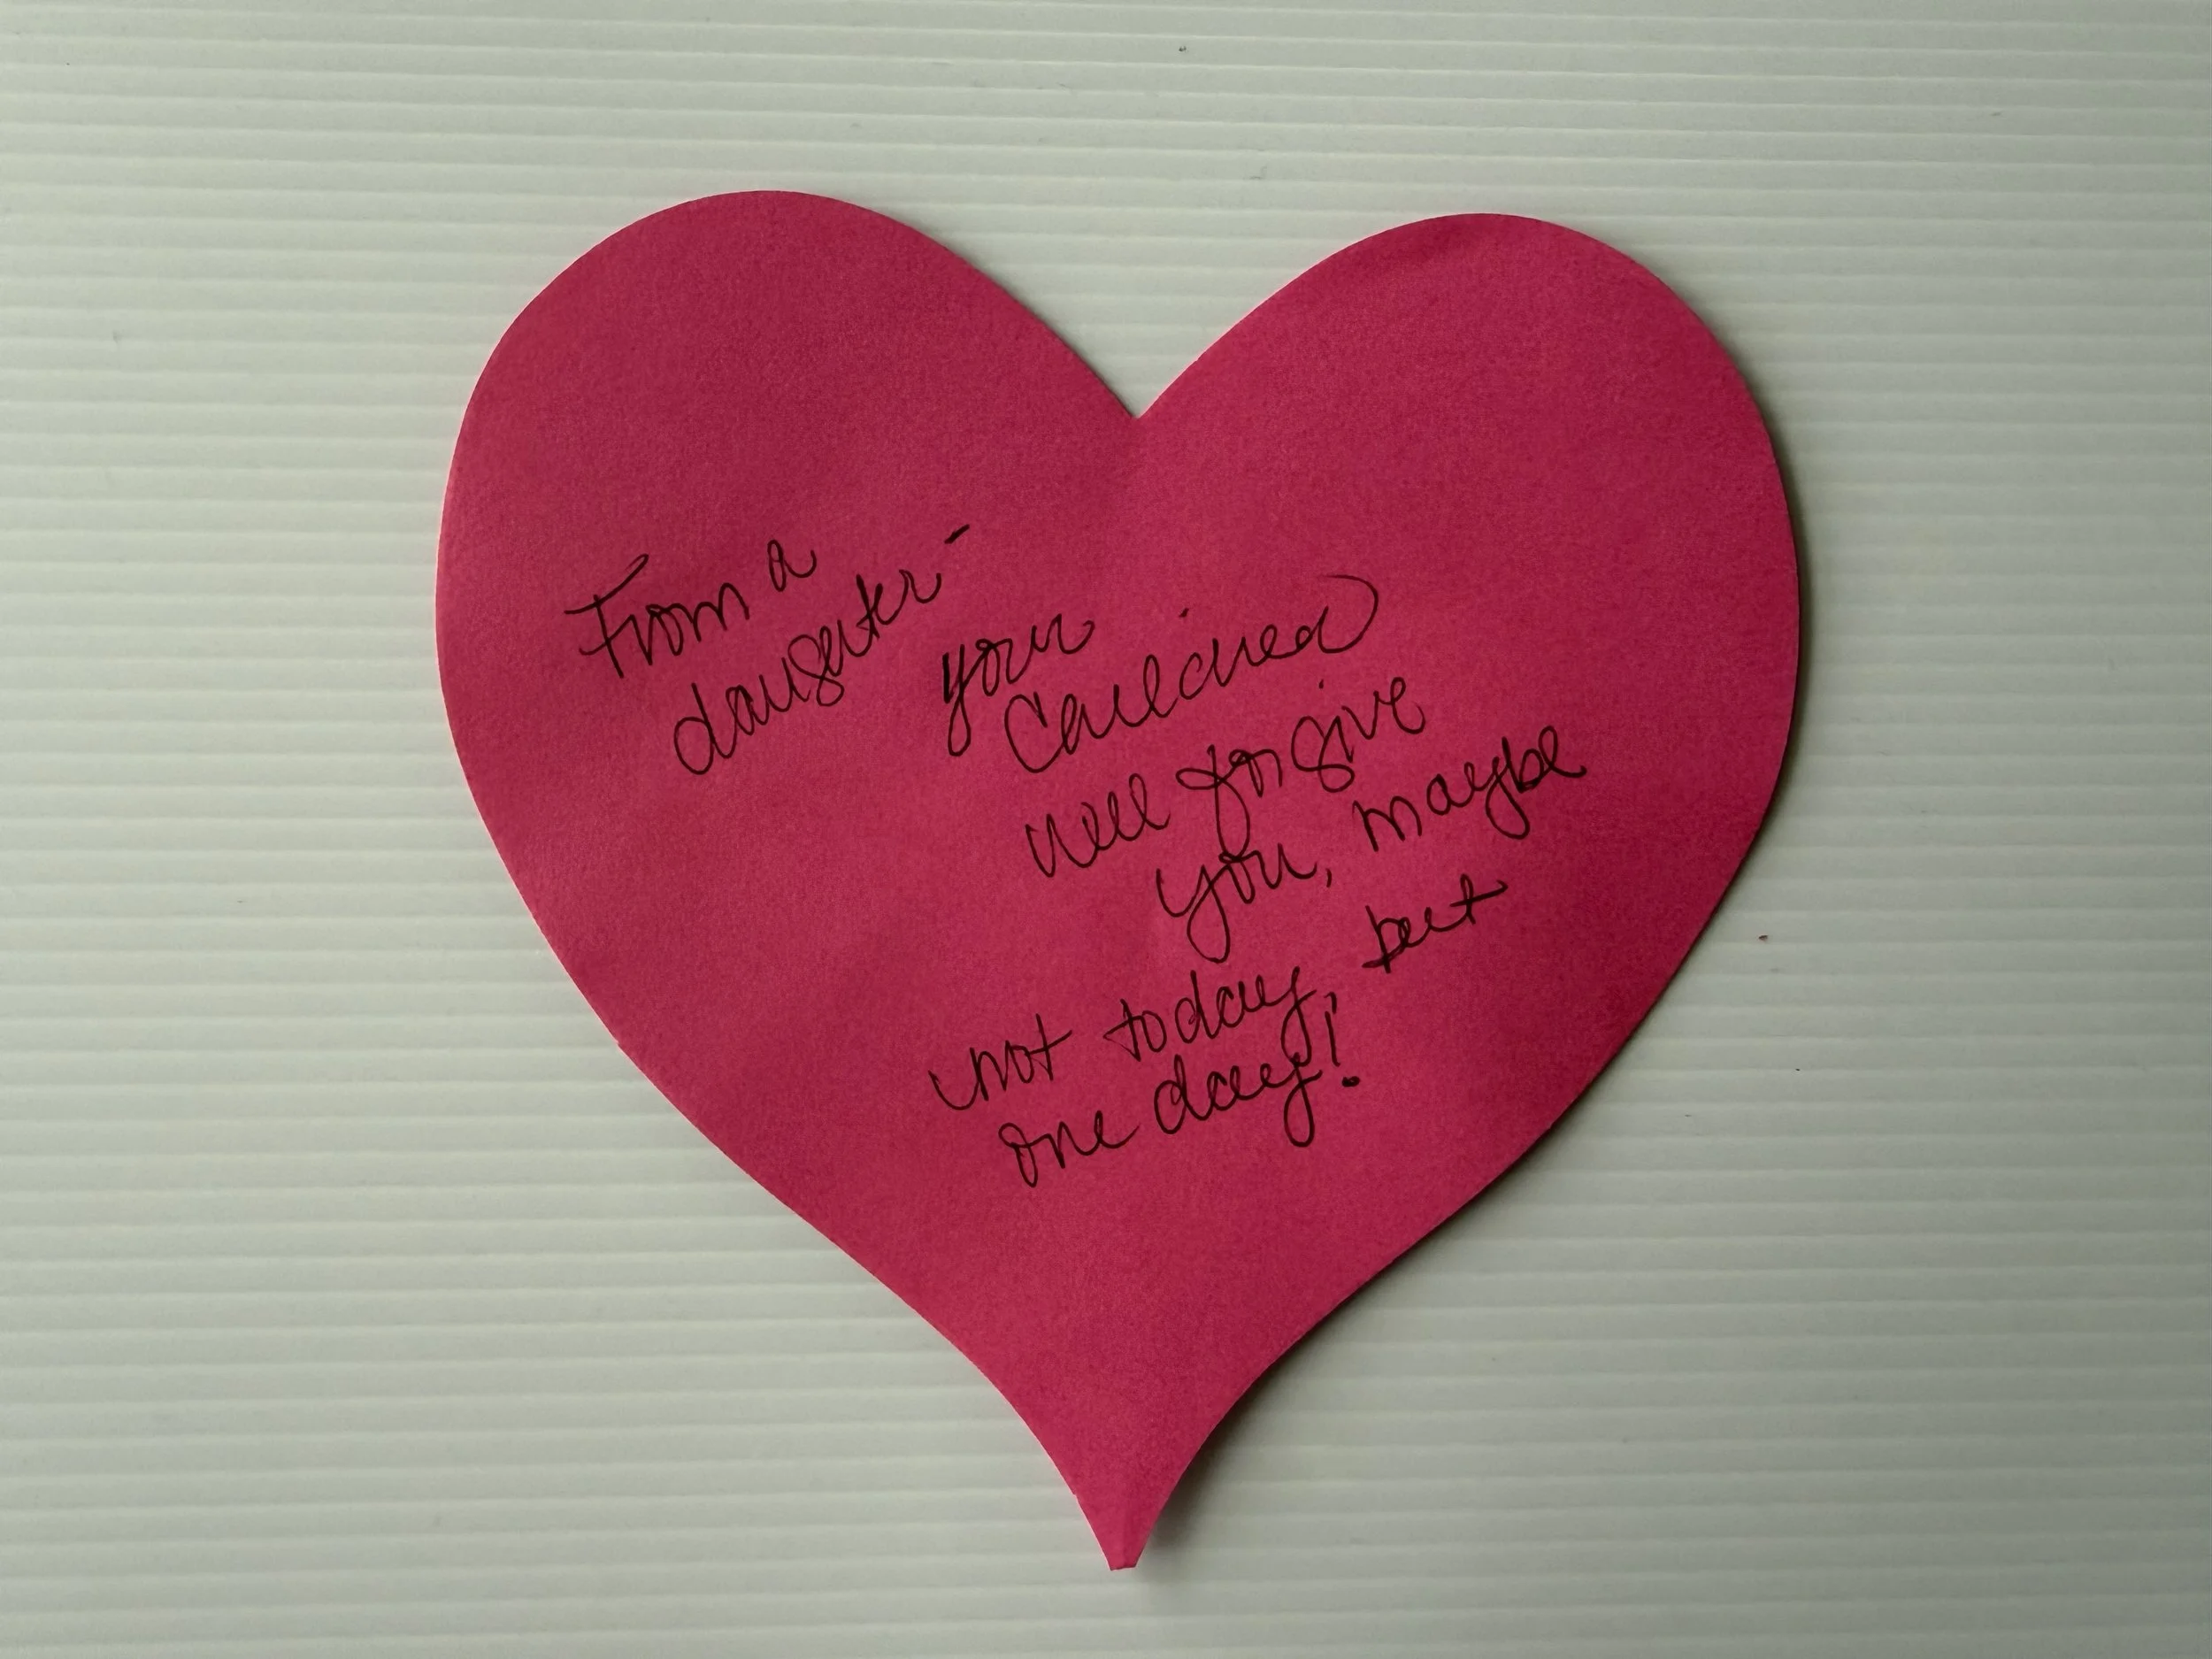 From a
daughter -
your
Children
will forgive
you, maybe
not today, but
one day!